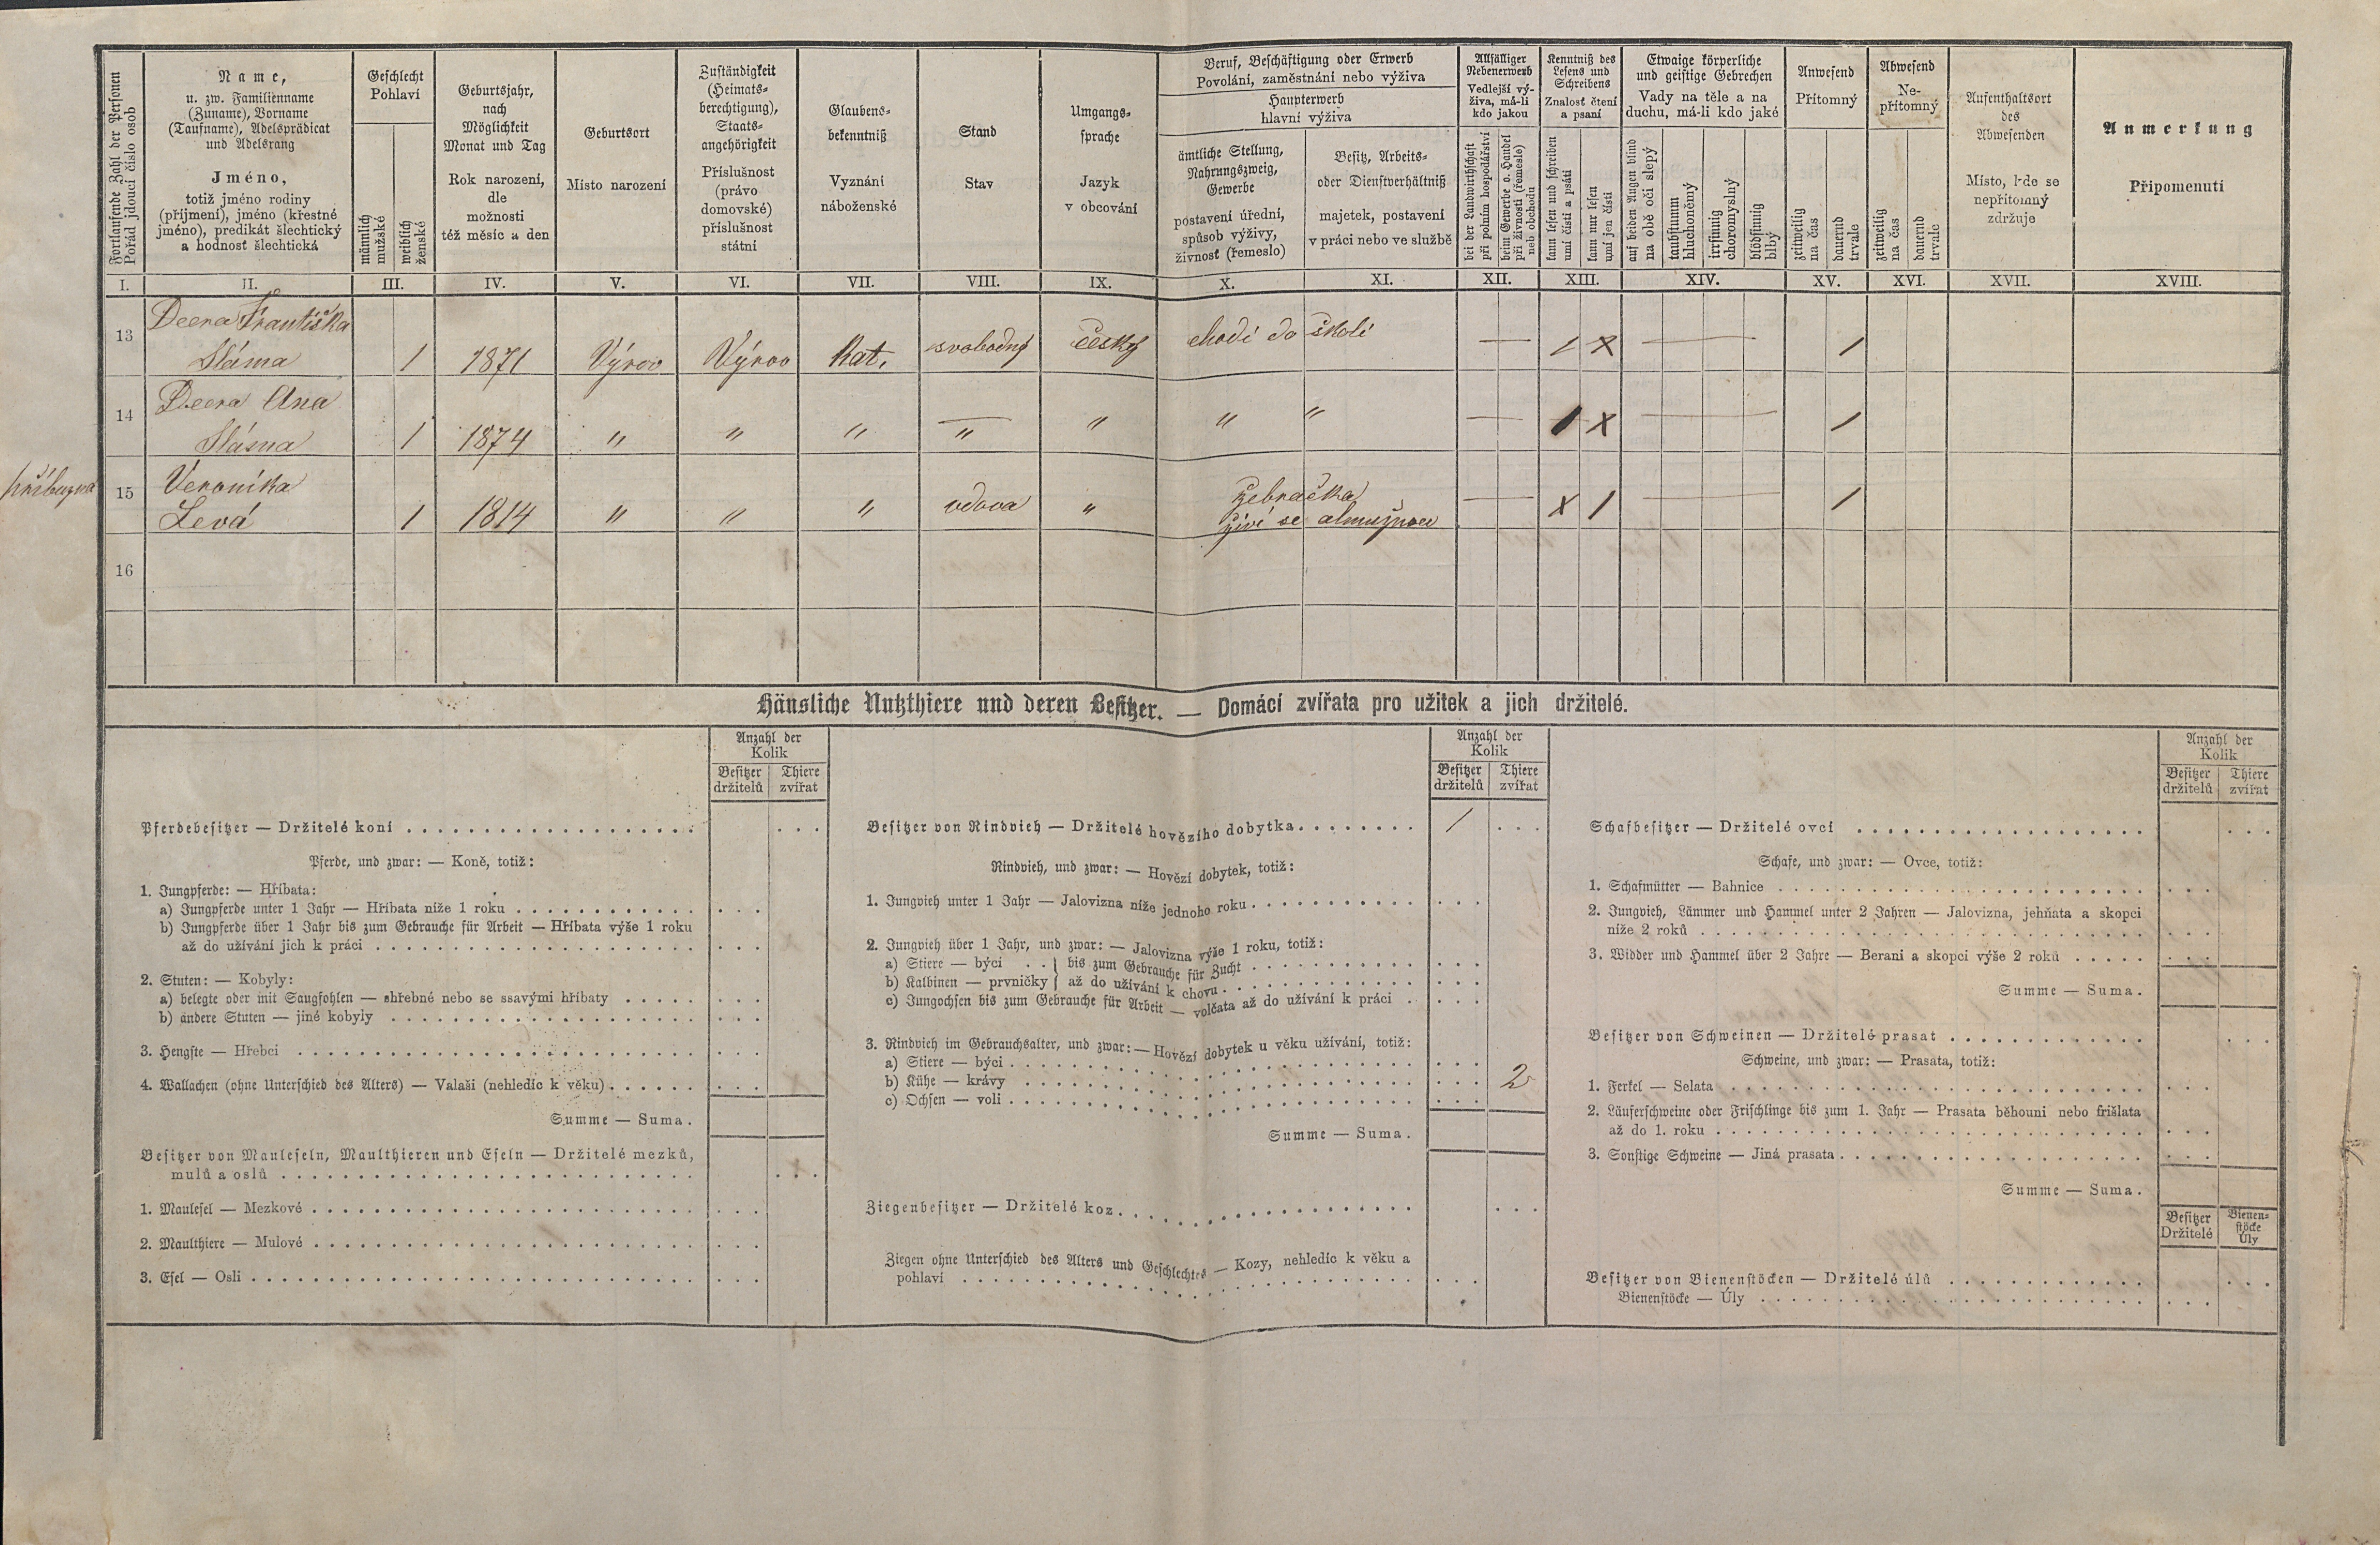 Fortlaufende Zahl der Personen
Pořád jdoucí číslo osob
Name,
u. zw. Familienname
(Zuname), Vorname
(Taufname), Adelsprädicat
und Adelsrang
Jméno,
totiž jméno rodiny
(příjmení), jméno (křestné
jméno), predikát šlechtický
a hodnosť šlechtická
Geschlecht
Pohlaví
männlich
mužské
weiblich
ženské
Geburtsjahr,
nach
Möglichkeit
Monat und Tag
Rok narození,
dle
možnosti
též měsíc a den
Geburtsort
Místo narození
Zuständigkeit
(Heimats-
berechtigung),
Staats-
angehörigkeit
Příslušnost
(právo
domovské)
příslušnost
státní
Glaubens-
bekenntniß
Vyznání
náboženské
Stand
Stav
Umgangs-
sprache
Jazyk
v obcování
Beruf, Beschäftigung oder Erwerb
Povolání, zaměstnání nebo výživa
Haupterwerb
hlavní výživa
ämtliche Stellung,
Nahrungszweig,
Gewerbe
postavení úřední,
spůsob výživy,
živnosť (řemeslo)
Besitz, Arbeits-
oder Dienstverhältniß
majetek, postavení
v práci nebo ve službě
Allfälliger
Nebenerwerb
Vedlejší vý-
živa, má-li
kdo jakou
bei der Landwirthschaft
při polním hospodářství
beim Gewerbe o. Handel
při živnosti (řemesle)
neb obchodu
Kenntniß des
Lesens und
Schreibens
Znalosť čtení
a psaní
kann lesen und schreiben
umí čísti a psáti
kann nur lesen
umí jen čísti
Etwaige körperliche
und geistige Gebrechen
Vady na těle a na
duchu, má-li kdo jaké
auf beiden Augen blind
na obě oči slepý
taubstumm
hluchoněmý
irrsinnig
choromyslný
blödsinnig
blbý
Anwesend
Přítomný
zeitweilig
na čas
dauernd
trvale
Abwesend
Ne-
přítomný
zeitweilig
na čas
dauernd
trvale
Aufenthaltsort
des
Abwesenden
Místo, kde se
nepřítomný
zdržuje
Anmerkung
Připomenutí
I. II. III. IV. V. VI. VII. VIII. IX. X. XI. XII. XIII. XIV. XV. XVI. XVII. XVIII.
13 Dcera Františka
Sláma 1 1871 Výrov Výrov Kat. svobodný český chodí do školi — 1 X — 1
14 Dcera Ana
Sláma 1 1874 " " " " " " " — 1 X — 1
příbuzná 15 Veronika
Levá 1 1814 " " " vdova " žebračka
živí se almužnou — X 1 — 1
16
Häusliche Nutzthiere und deren Besitzer. — Domácí zvířata pro užitek a jich držitelé.
Anzahl der
Kolik
Besitzer
držitelů
Thiere
zvířat
Pferdebesitzer — Držitelé koní
Pferde, und zwar: — Koně, totiž:
1. Jungpferde: — Hříbata:
a) Jungpferde unter 1 Jahr — Hříbata níže 1 roku
b) Jungpferde über 1 Jahr bis zum Gebrauche für Arbeit — Hříbata výše 1 roku
až do užívání jich k práci
2. Stuten: — Kobyly:
a) belegte oder mit Saugfohlen — shřebné nebo se ssavými hříbaty
b) andere Stuten — jiné kobyly
3. Hengste — Hřebci
4. Wallachen (ohne Unterschied des Alters) — Valaši (nehledíc k věku)
Summe — Suma.
Besitzer von Mauleseln, Maulthieren und Eseln — Držitelé mezků,
mulů a oslů
1. Maulesel — Mezkové
2. Maulthiere — Mulové
3. Esel — Osli
Anzahl der
Kolik
Besitzer
držitelů
Thiere
zvířat
Besitzer von Rindvieh — Držitelé hovězího dobytka 1
Rindvieh, und zwar: — Hovězí dobytek, totiž:
1. Jungvieh unter 1 Jahr — Jalovizna níže jednoho roku
2. Jungvieh über 1 Jahr, und zwar: — Jalovizna výše 1 roku, totiž:
a) Stiere — býci . . } bis zum Gebrauche für Zucht
b) Kalbinen — prvničky } až do užívání k chovu
c) Jungochsen bis zum Gebrauche für Arbeit — volčata až do užívání k práci
3. Rindvieh im Gebrauchsalter, und zwar: — Hovězí dobytek u věku užívání, totiž:
a) Stiere — býci
b) Kühe — krávy 2
c) Ochsen — voli
Summe — Suma.
Ziegenbesitzer — Držitelé koz
Ziegen ohne Unterschied des Alters und Geschlechtes — Kozy, nehledíc k věku a
pohlaví
Anzahl der
Kolik
Besitzer
držitelů
Thiere
zvířat
Schafbesitzer — Držitelé ovcí
Schafe, und zwar: — Ovce, totiž:
1. Schafmütter — Bahnice
2. Jungvieh, Lämmer und Hammel unter 2 Jahren — Jalovizna, jehňata a skopci
níže 2 roků
3. Widder und Hammel über 2 Jahre — Berani a skopci výše 2 roků
Summe — Suma.
Besitzer von Schweinen — Držitelé prasat
Schweine, und zwar: — Prasata, totiž:
1. Ferkel — Selata
2. Läuferschweine oder Frischlinge bis zum 1. Jahr — Prasata běhouni nebo frišlata
až do 1. roku
3. Sonstige Schweine — Jiná prasata
Summe — Suma.
Besitzer
Držitelé
Bienen-
stöcke
Úly
Besitzer von Bienenstöcken — Držitelé úlů
Bienenstöcke — Úly